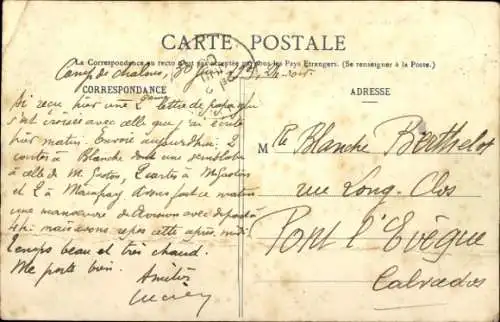 CARTE POSTALE
La Correspondance au recto n'est pas acceptée par tous les Pays Etrangers. (Se renseigner à la Poste.)
CORRESPONDANCE
ADRESSE
Camp de Chalons, 30 Juin
Ai reçu hier une 2ème lettre de papa qui
s'est croisée avec celle que j'ai écrite
hier matin. Envoie aujourd'hui 2
cartes à Blanche dont une semblable
à celle de M. Gaston, 2 cartes à M.
et 2 à Avons fait ce matin
une manoeuvre de division avec départ à
4h mais avons repos cette après midi
Temps beau et très chaud.
Me porte bien.
Amitiés
Lucien
Mlle Blanche Berthelot
rue Long-Clos
Pont l'Evêque
Calvados